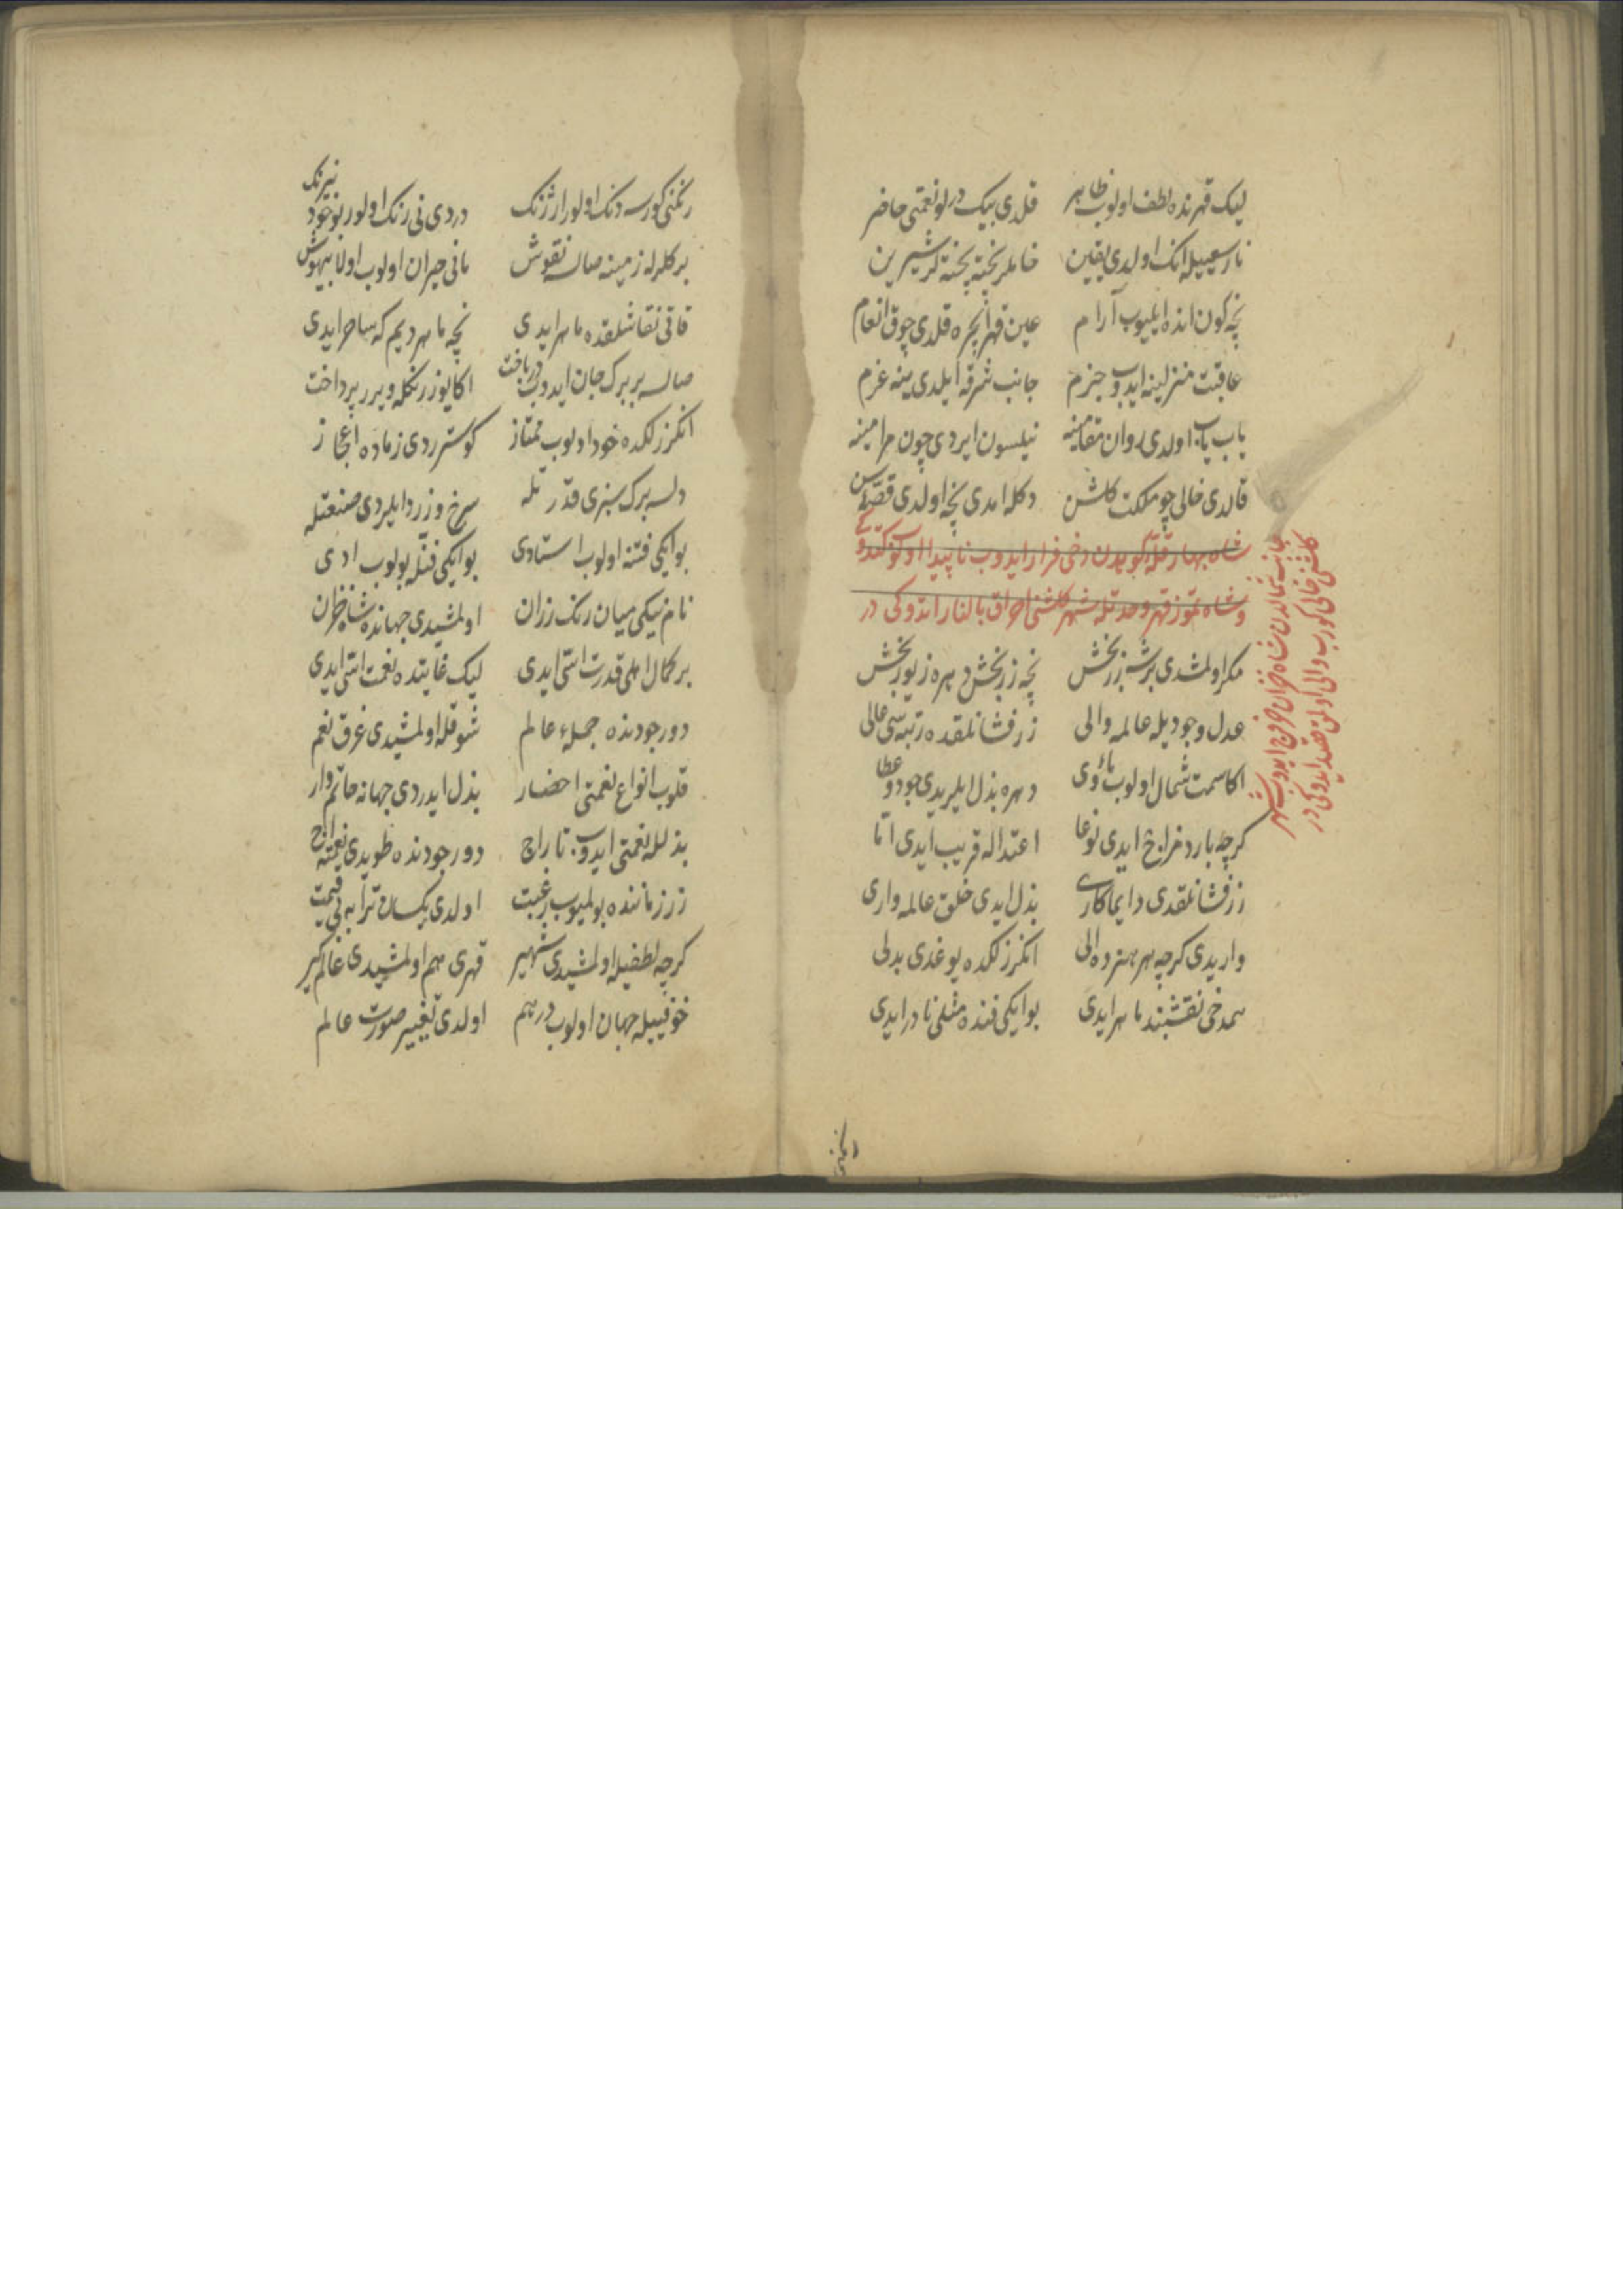 لیک قهرنده لطف اولوب ظاهر قلدی بیک درلو نعمتی حاضر
نار سعییله انک اولدی یقین خاملر پخته پخته‌لر شیرین
نچه کون انده ایلیوب آرام عین قهر ایچره قلدی چوق انعام
عاقبت منزلینه ایدوب جزم جانب شرقه ایلدی ینه عزم
یاب یاب اولدی روان مقامینه نیلسون ایردی چون مرامینه
قالدی خالی چو مملکت کلشن دکله امدی نچه اولدی قصه سن
شاه بهار قله کوهدن دخی فرار ایدوب ناپیدا
وشاه تموز قهر وحدتله شهر کلشنی احراق بالنار ایتدوکی در
جانب شمالدن شاه خزان خروج ایدوب شهر
کلشنی خالی کورب والی اولمق قصد ایدوکی در
مکر اولمشدی بر شه زربخش نچه زربخش دهره زیوربخش
عدل وجودیله عالمه والی زرفشانلقده رتبه‌سی عالی
اکا سمت شمال اولوب مأوی دهره بذل ایلریدی جود وعطا
کرچه بارد مزاج ایدی نوعا اعتداله قریب ایدی اما
زرفشانلقدی دایما کاری بذل ایدی خلق عالمه واری
واریدی کرچه هر هنرده الی انکرزلکده یوغدی بدلی
همدخی نقشبند ماهر ایدی بو ایکی فنده مثلی نادر ایدی
رنکنی
رنکنی کورسه دنک اولور ارژنک دردی نی رنک اولور بو خود نیرنک
برکلرله زمینه صالسه نقوش مانی حیران اولوب اولا بیهوش
قاتی نقاشلقده ماهر ایدی نچه ماهر دیم که ساحر ایدی
صالسه بر برک جان ایدوب دریافت اکا یوز رنکله ویرر پرداخت
انکرزلکده خود اولوب ممتاز کوستردی زماده اعجاز
دلسه برک سبزی قدرتله سرخ وزرد ایلردی صنعتله
بو ایکی فنه اولوب استادی بو ایکی فنله بولوب ادی
نام نیکی میان رنک رزان اولمشیدی جهانده شاه خزان
بر کمال اهلی قدرت استی ایدی لیک غایتده نعمت استی ایدی
دور جودنده جملهٔ عالم شوقله اولمشیدی غرق نعم
قلوب انواع نعمتی احضار بذل ایدردی جهانه حاتم وار
بذلله نعمتی ایدوب تاراج دور جودنده طویدی نعمته اج
زر زماننده بولمیوب رغبت اولدی یکسان ترابه بی قیمت
کرچه لطفیله اولمشیدی شهیر قهری هم اولمشیدی عالمکیر
خوفییله جهان اولوب درهم اولدی تغییر صورت عالم